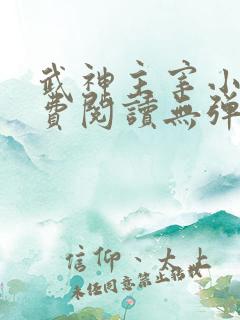 武神主宰小
費閱讀無彈
信仰、大上
未经同意禁止转载